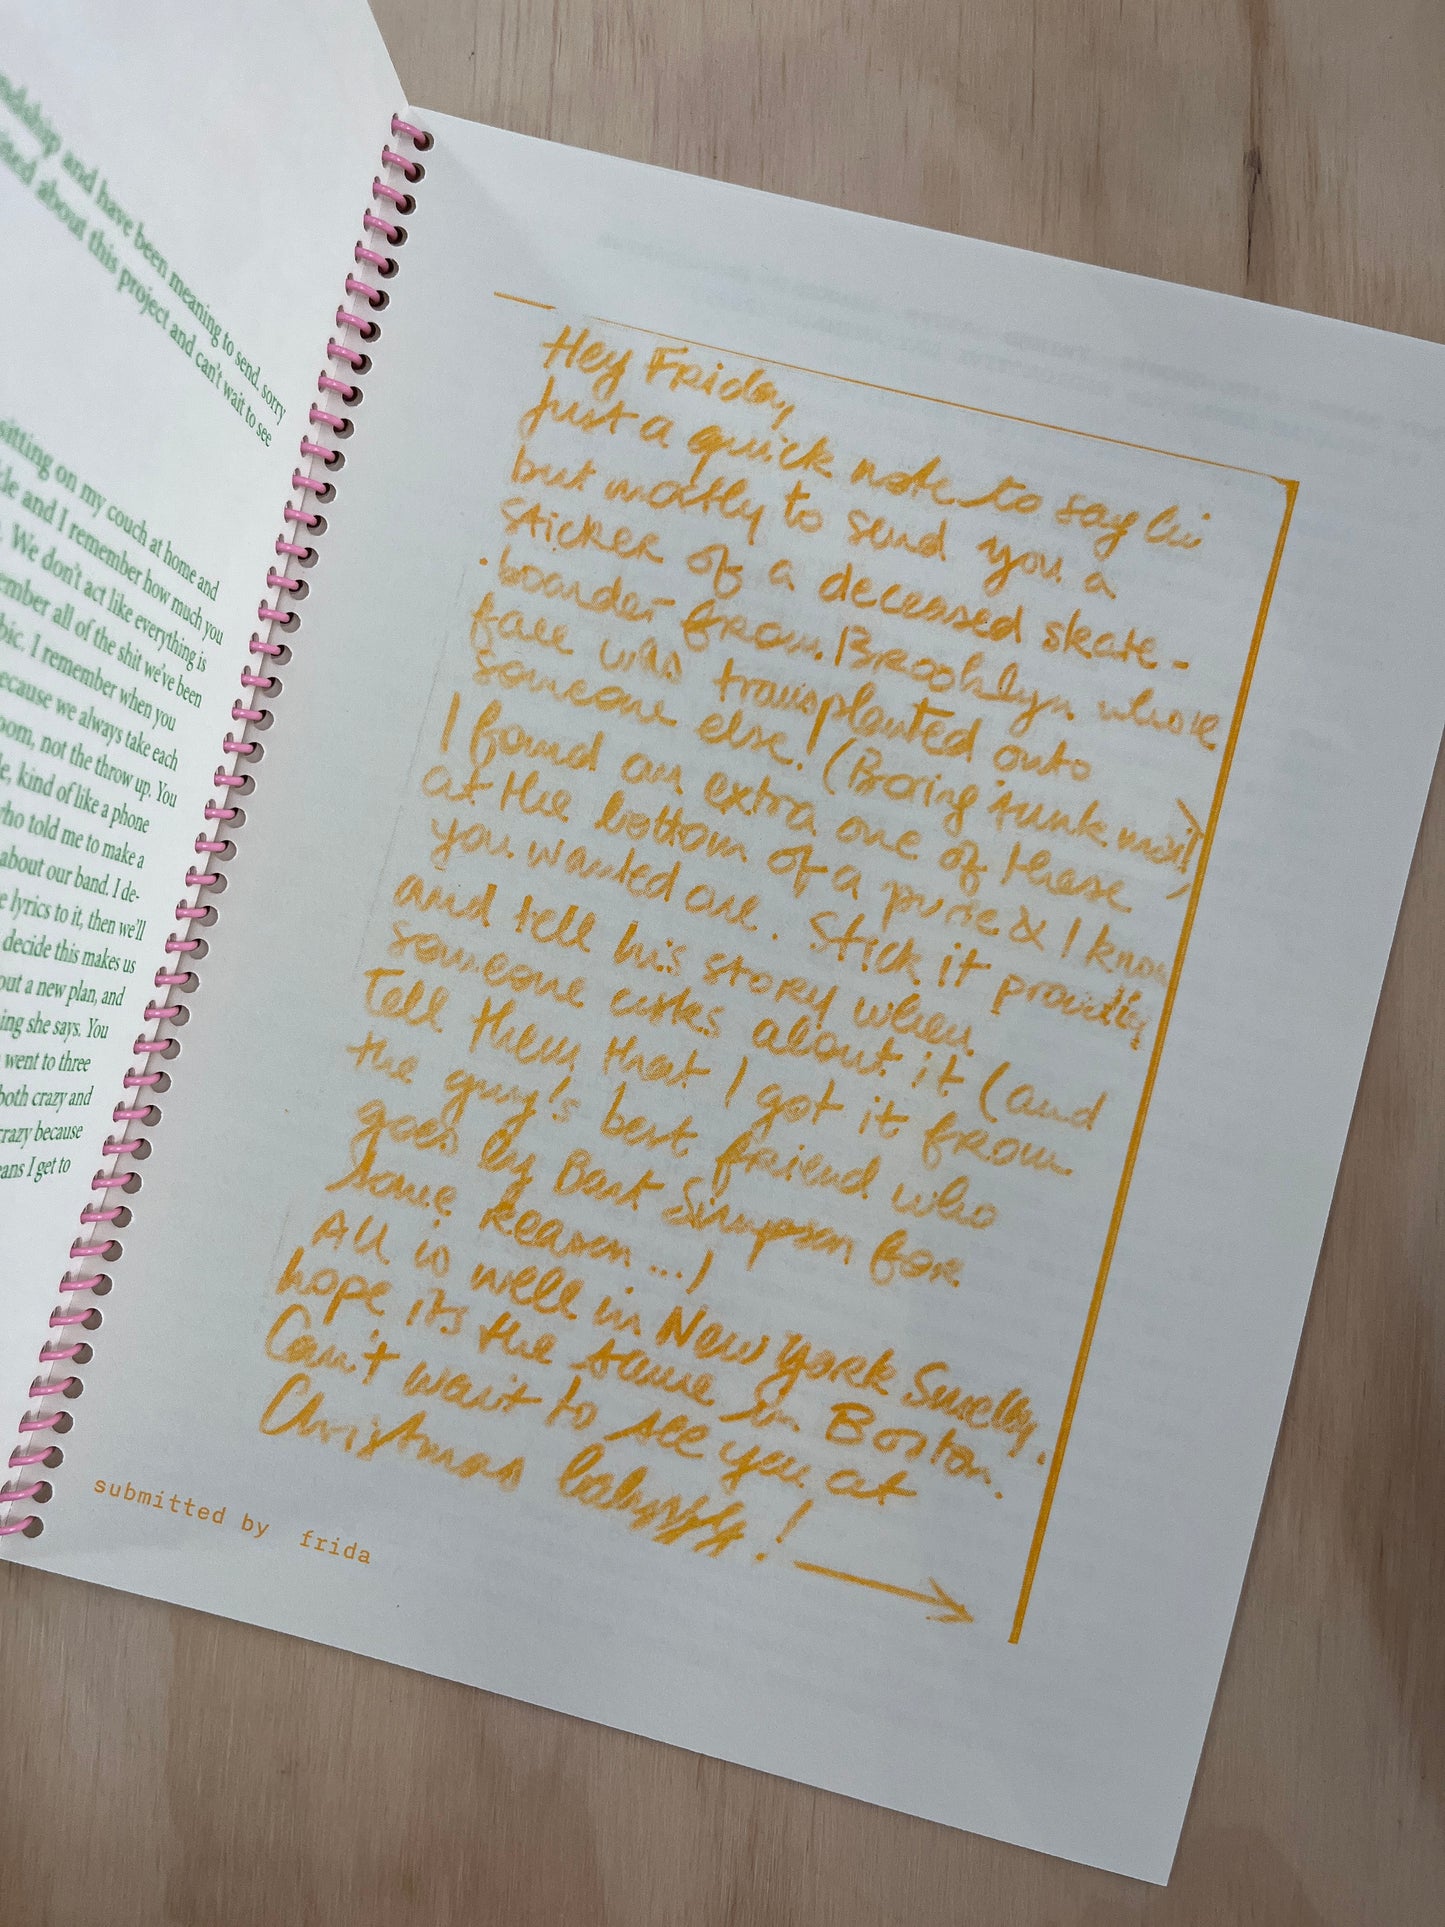 ndship and have been meaning to send, sorry
ned about this project and can't wait to see
sitting on my couch at home and
le and I remember how much you
. We don't act like everything is
ember all of the shit we've been
bic. I remember when you
ecause we always take each
oom, not the throw up. You
e, kind of like a phone
who told me to make a
about our band. I de-
e lyrics to it, then we'll
decide this makes us
out a new plan, and
ing she says. You
went to three
both crazy and
crazy because
eans I get to
Hey Friday,
Just a quick note to say hi
but mostly to send you a
sticker of a deceased skate-
boarder from Brooklyn whose
face was transplanted onto
someone else! (Boring junk mail)
I found an extra one of these
at the bottom of a purse & I know
you wanted one. Stick it proudly
and tell his story when
someone asks about it (and
tell them that I got it from
the guy's best friend who
goes by Bart Simpson for
some reason...)
All is well in New York Smelly.
hope it's the same in Boston.
Can't wait to see you at
Christmas !
submitted by frida